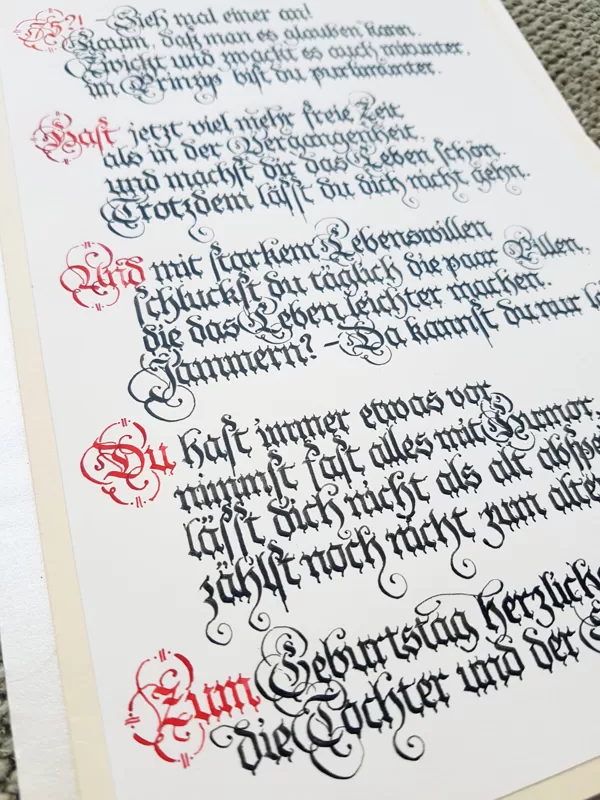 ?! – Sieh mal einer an!
Kaum, daß man es glauben kann.
Zwickt und zwackt es auch mitunter,
im Prinzip bist du putzmunter.
Hast jetzt viel mehr freie Zeit
als in der Vergangenheit,
und machst dir das Leben schön.
Trotzdem lässt du dich nicht gehn.
Und mit starkem Lebenswillen
schluckst du täglich die paar Pillen,
die das Leben leichter machen.
Jammern? – Da kannst du nur
Du hast immer etwas vor,
nimmst fast alles mit Humor,
lässt dich nicht als alt
zählst noch nicht zum
Zum Geburtstag
die Tochter und der